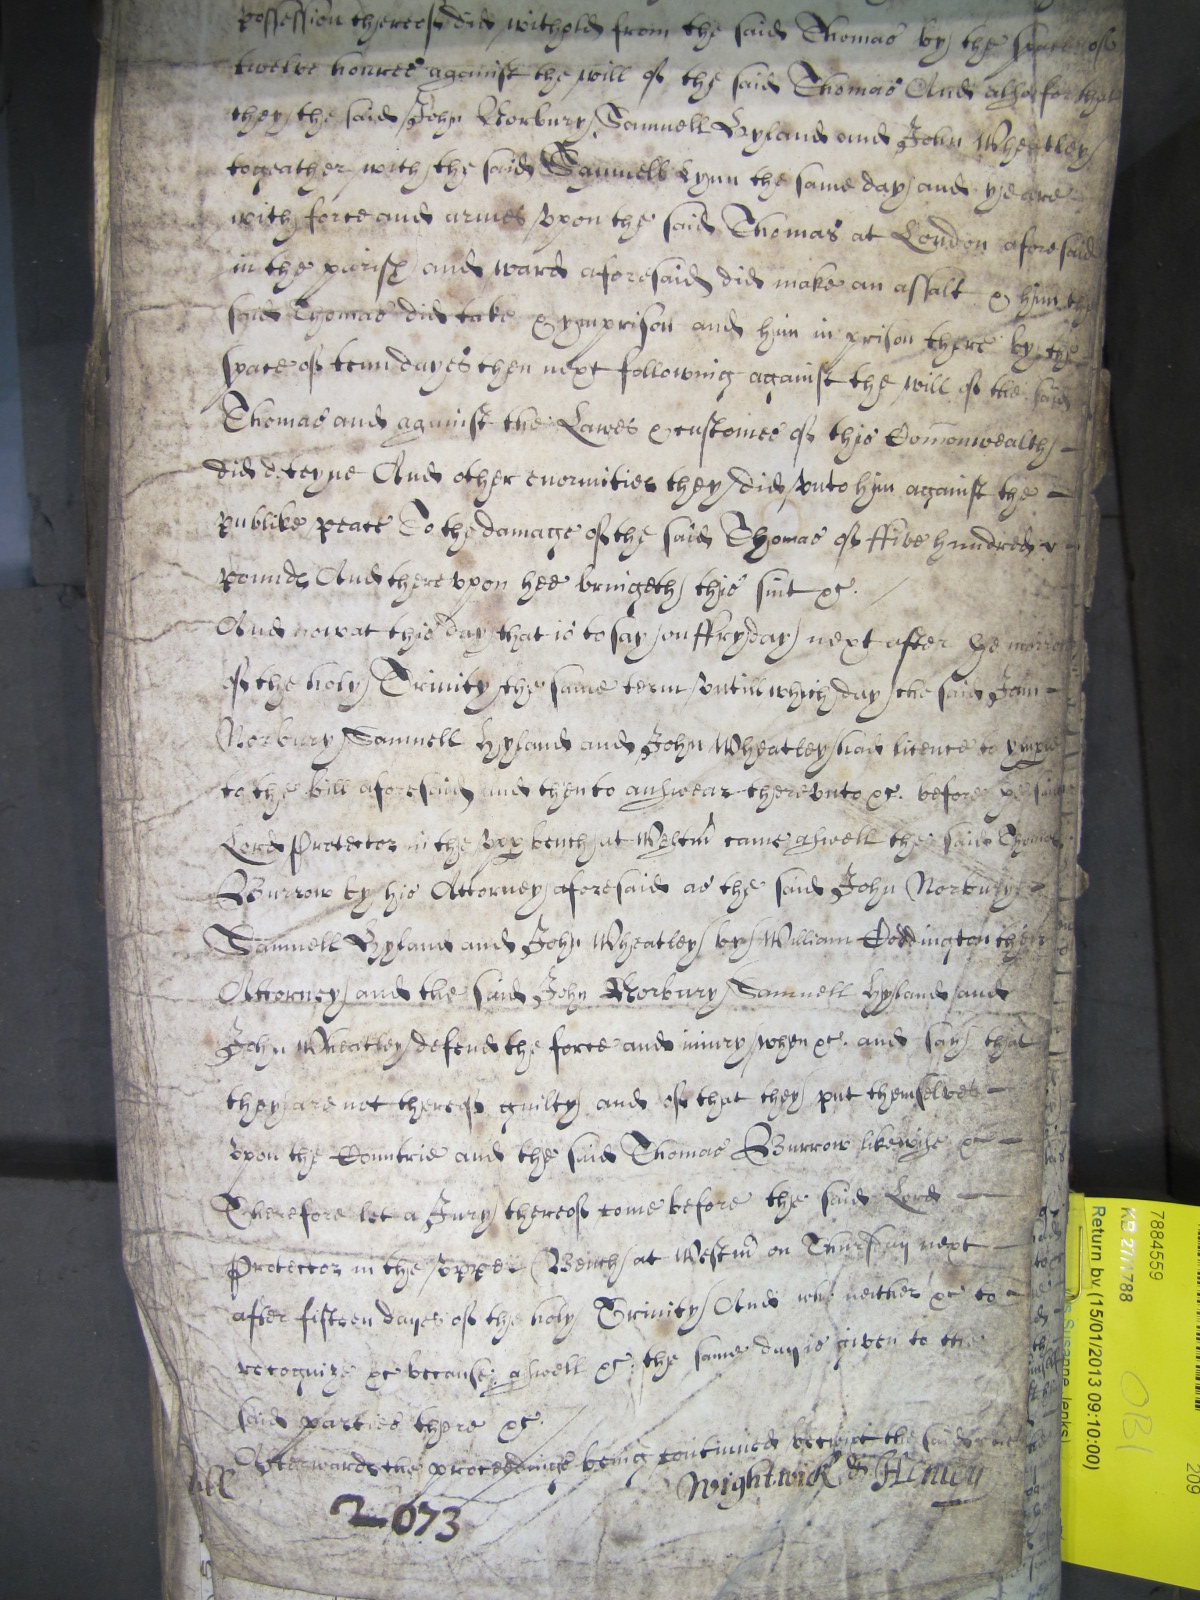 possession thereof did withold from the said Thomas by the space of
twelve houres against the will of the said Thomas And alsoe for that
they the said John Norbury Samuell Hyland and John Wheatley
togeather with the said Samuell Lynn the same day and yeare
with force and armes upon the said Thomas at London aforesaid
in the parish and ward aforesaid did make an assalt & him the
said Thomas did take & ymprison and him in prison there by the
space of tenn dayes then next following against the will of the said
Thomas and against the Lawes & customes of this Comonwealth
did deteyne And other enormities they did unto him against the
publike peace To the damage of the said Thomas of ffive hundred
pounds And thereupon hee bringeth this suit &c.
And now at this day that is to say on ffryday next after the morrow
of the holy Trinity the same term untill which day the said John
Norbury Samuell Hyland and John Wheatley had licence to
to the bill aforesaid and then to answear thereunto &c. before the said
Lord Protector in the upp bench at Westm came aswell the said Thomas
Burrow by his Attorney aforesaid as the said John Norbury
Samuell Hyland and John Wheatley by William Coddington their
Attorney and the said John Norbury Samuell Hyland and
John Wheatley defend the force and iniury when &c. and say that
they are not thereof guilty and of that they put themselves
upon the Countrie and the said Thomas Burrow likewise &c
Therefore let a Jury thereof come before the said Lord
Protector in the upper Bench at Westm on Thursday next
after fifteen dayes of the holy Trinity And who neither &c to
recognize &c because aswell &c. the same day is given to the
said parties there &c.
Afterwards the proceedings being continued betwixt the said
Wightwick &
2073
7884559
KB 27/1788
Return by (15/01/2013 09:10:00)
Ms Susanne Jenks)
OB1
209